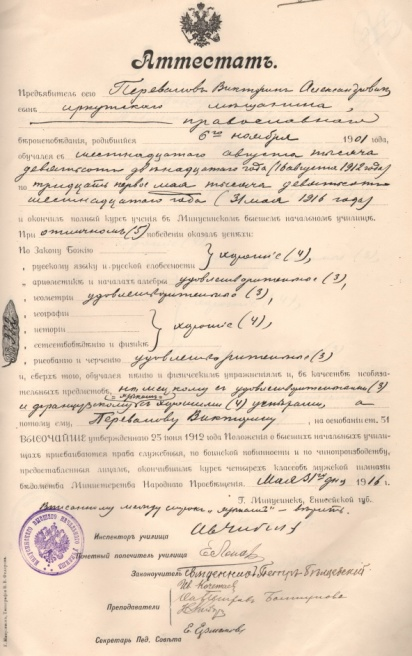 Аттестатъ.
Предъявитель сего Переваловъ Викторинъ Александровичъ
сынъ иркутскаго мѣщанина,
православнаго
вѣроисповѣданія, родившійся 6го ноября 1901 года,
обучался съ шестнадцатаго августа тысяча
девятьсотъ двѣнадцатаго года (16 августа 1912 года)
по тридцать первое мая тысяча девятьсотъ
шестнадцатаго года (31 мая 1916 года)
и окончилъ полный курсъ ученія въ Минусинскомъ высшемъ начальномъ училищѣ.
При отличномъ (5) поведеніи оказалъ успѣхи:
По Закону Божію
" русскому языку и русской словесности } хорошіе (4),
" ариѳметикѣ и началамъ алгебры удовлетворительные (3),
" геометріи удовлетворительные (3),
" географіи
" исторіи } хорошіе (4),
" естествовѣдѣнію и физикѣ
" рисованію и черченію удовлетворительные (3)
и, сверхъ того, обучался пѣнію и физическимъ упражненіямъ и, въ качествѣ необяза-
тельныхъ предметовъ, нѣмецкому съ удовлетворительными (3)
и французскому съ хорошими (4) успѣхами, а
потому ему, Перевалову Викторину, на основаніи ст. 31
ВЫСОЧАЙШЕ утвержденнаго 25 іюня 1912 года Положенія о высшихъ начальныхъ учили-
щахъ присваиваются права служебныя, по воинской повинности и по чинопроизводству,
предоставленныя лицамъ, окончившимъ курсъ четырехъ классовъ мужской гимназіи
вѣдомства Министерства Народнаго Просвѣщенія. Мая 31го дня 1916 г.
Г. Минусинскъ, Енисейской губ.
Вписанному между строкъ вѣрить.
Инспекторъ училища
Почетный попечитель училища
Законоучитель Священникъ
Преподаватели
Секретарь Пед. Совѣта